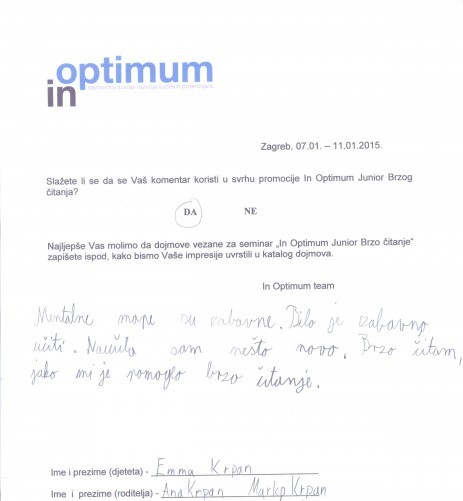 optimum
in
Zagreb, 07.01. – 11.01.2015.
Slažete li se da se Vaš komentar koristi u svrhu promocije In Optimum Junior Brzog
čitanja?
DA NE
Najljepše Vas molimo da dojmove vezane za seminar „In Optimum Junior Brzo čitanje“
zapišete ispod, kako bismo Vaše impresije uvrstili u katalog dojmova.
In Optimum team
Mentalne mape su zabavne. Bilo je zabavno
učiti. Naučila sam nešto novo. Brzo čitam,
jako mi je pomoglo brzo čitanje.
Ime i prezime (djeteta) - Emma Krpan
Ime i prezime (roditelja) - Ana Krpan Marko Krpan